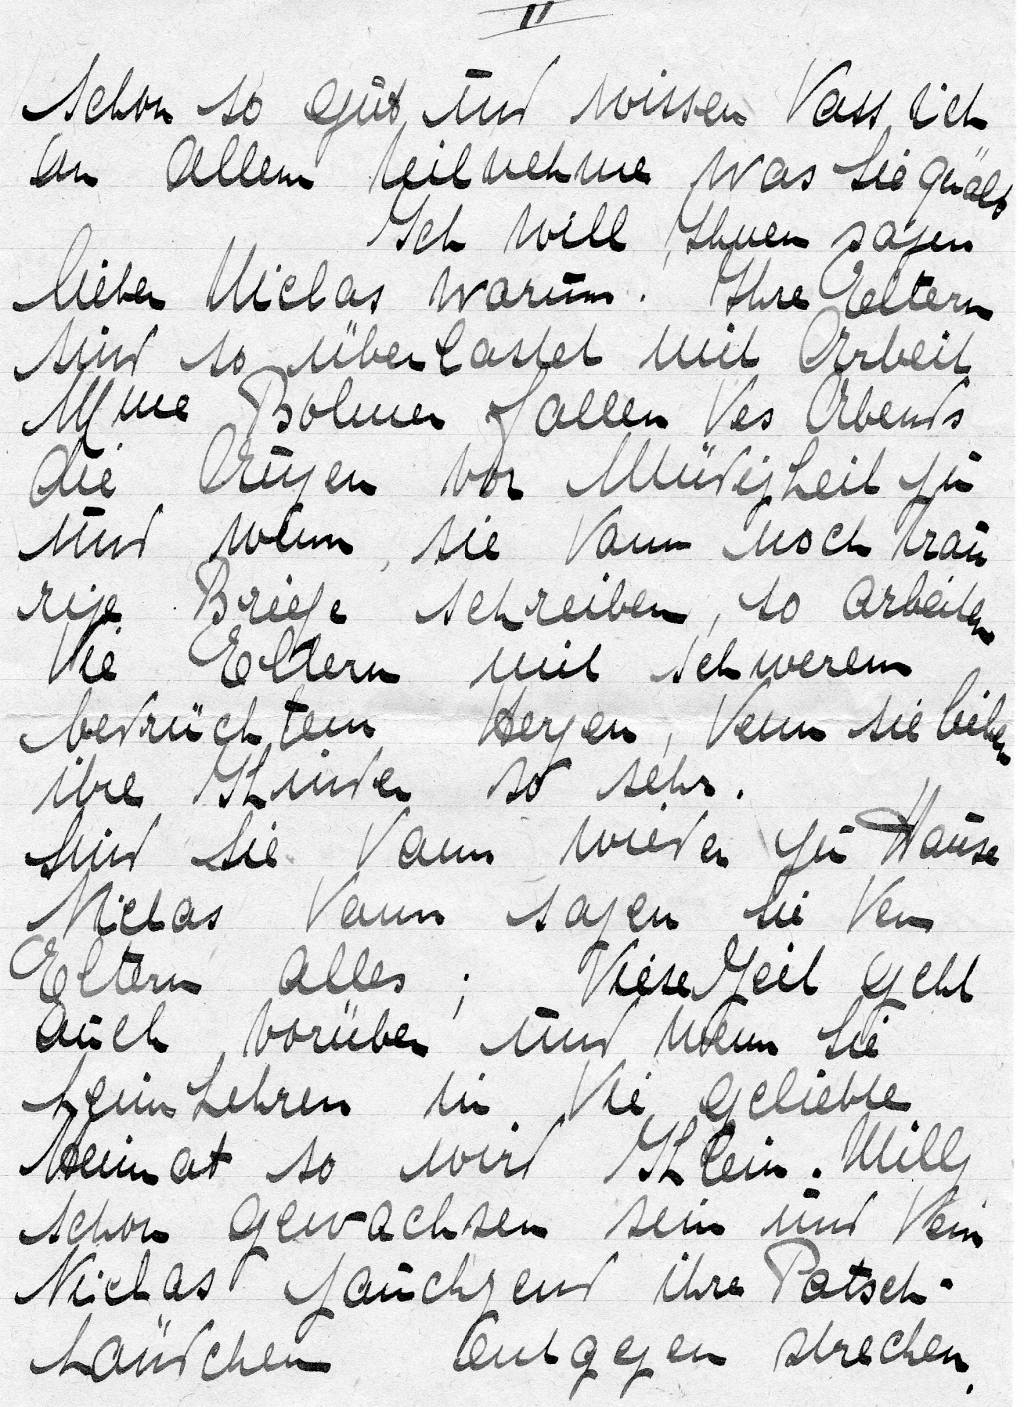 II
schon so gut und wissen dass ich
an allem teilnehme was Sie quält
Ich will Ihnen sagen
lieber Niclas warum. Ihre Eltern
sind so überlastet mit Arbeit
Mme Bohner fallen des Abends
die Augen vor Müdigkeit zu
und wenn, sie dann noch trau
rige Briefe schreiben, so arbeiten
die Eltern mit schwerem
bedrücktem Herzen, denn sie lieben
ihre Kinder so sehr.
Sind Sie dann wieder zu Hause
Niclas dann sagen Sie den
Eltern alles; diese Zeit geht
auch vorüber und wenn Sie
heimkehren in die geliebte
Heimat so wird Klein. Milly
schon gewachsen sein und dem
Niclas jauchzend ihre Patsch-
händchen entgegen strecken.